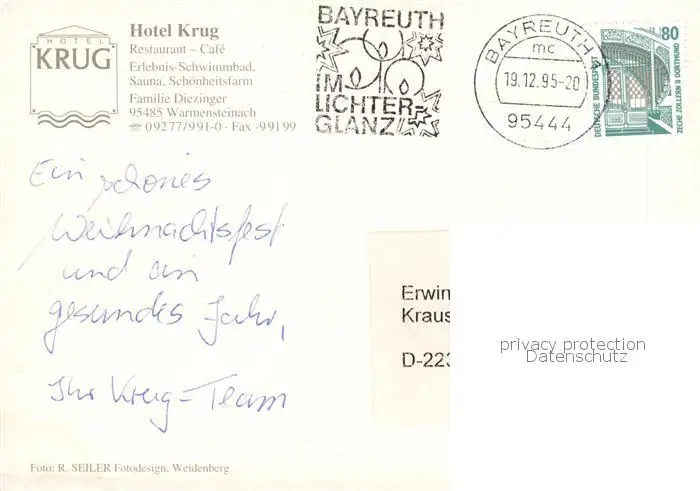 HOTEL
KRUG
Hotel Krug
Restaurant – Café
Erlebnis-Schwimmbad,
Sauna, Schönheitsfarm
Familie Diezinger
95485 Warmensteinach
☎ 09277/991-0 · Fax -99199
BAYREUTH
IM
LICHTER-
GLANZ
BAYREUTH
mc
19.12.95-20
95444
80
DEUTSCHE BUNDESPOST
ZECHE ZOLLERN II DORTMUND
Ein schönes
Weihnachtsfest
und ein
gesundes Jahr,
Ihr Krug-Team
Erwin
Kraus
D-223
privacy protection
Datenschutz
Foto: R. SEILER Fotodesign, Weidenberg